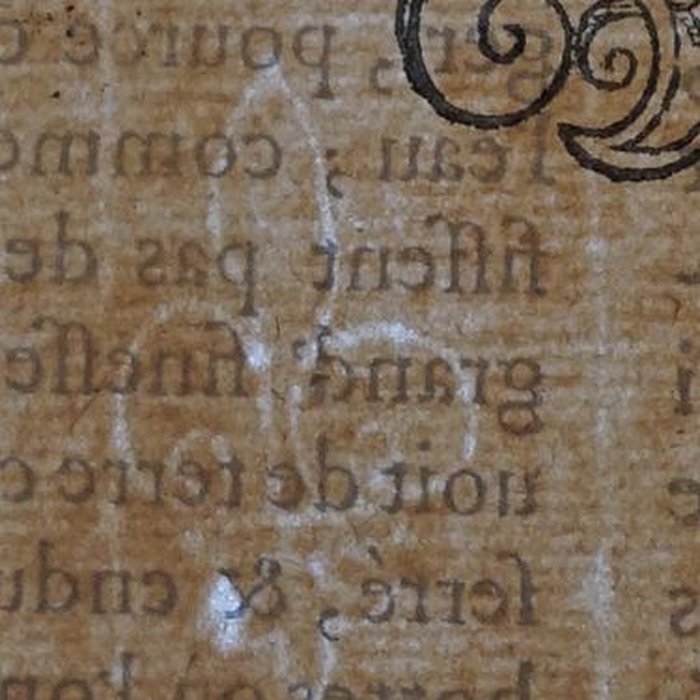 ger, pource
l'eau ; comm
ſiſſent pas de
grand' fineſſe
noit de terre
ſerré, & endu